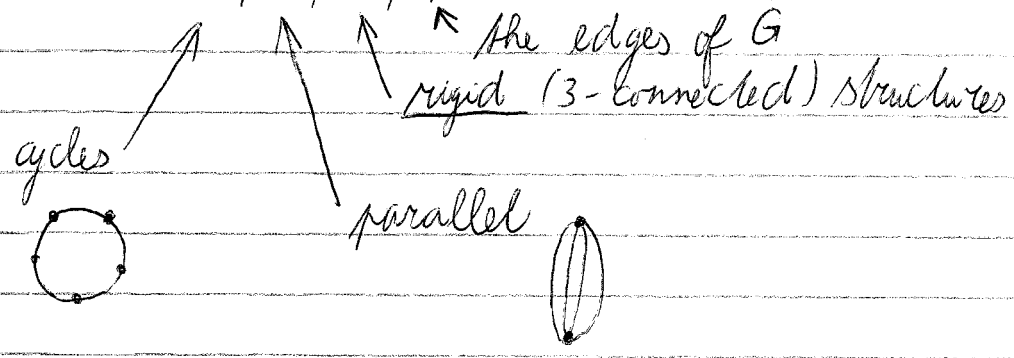 the edges of G
rigid (3-connected) structures
cycles
parallel